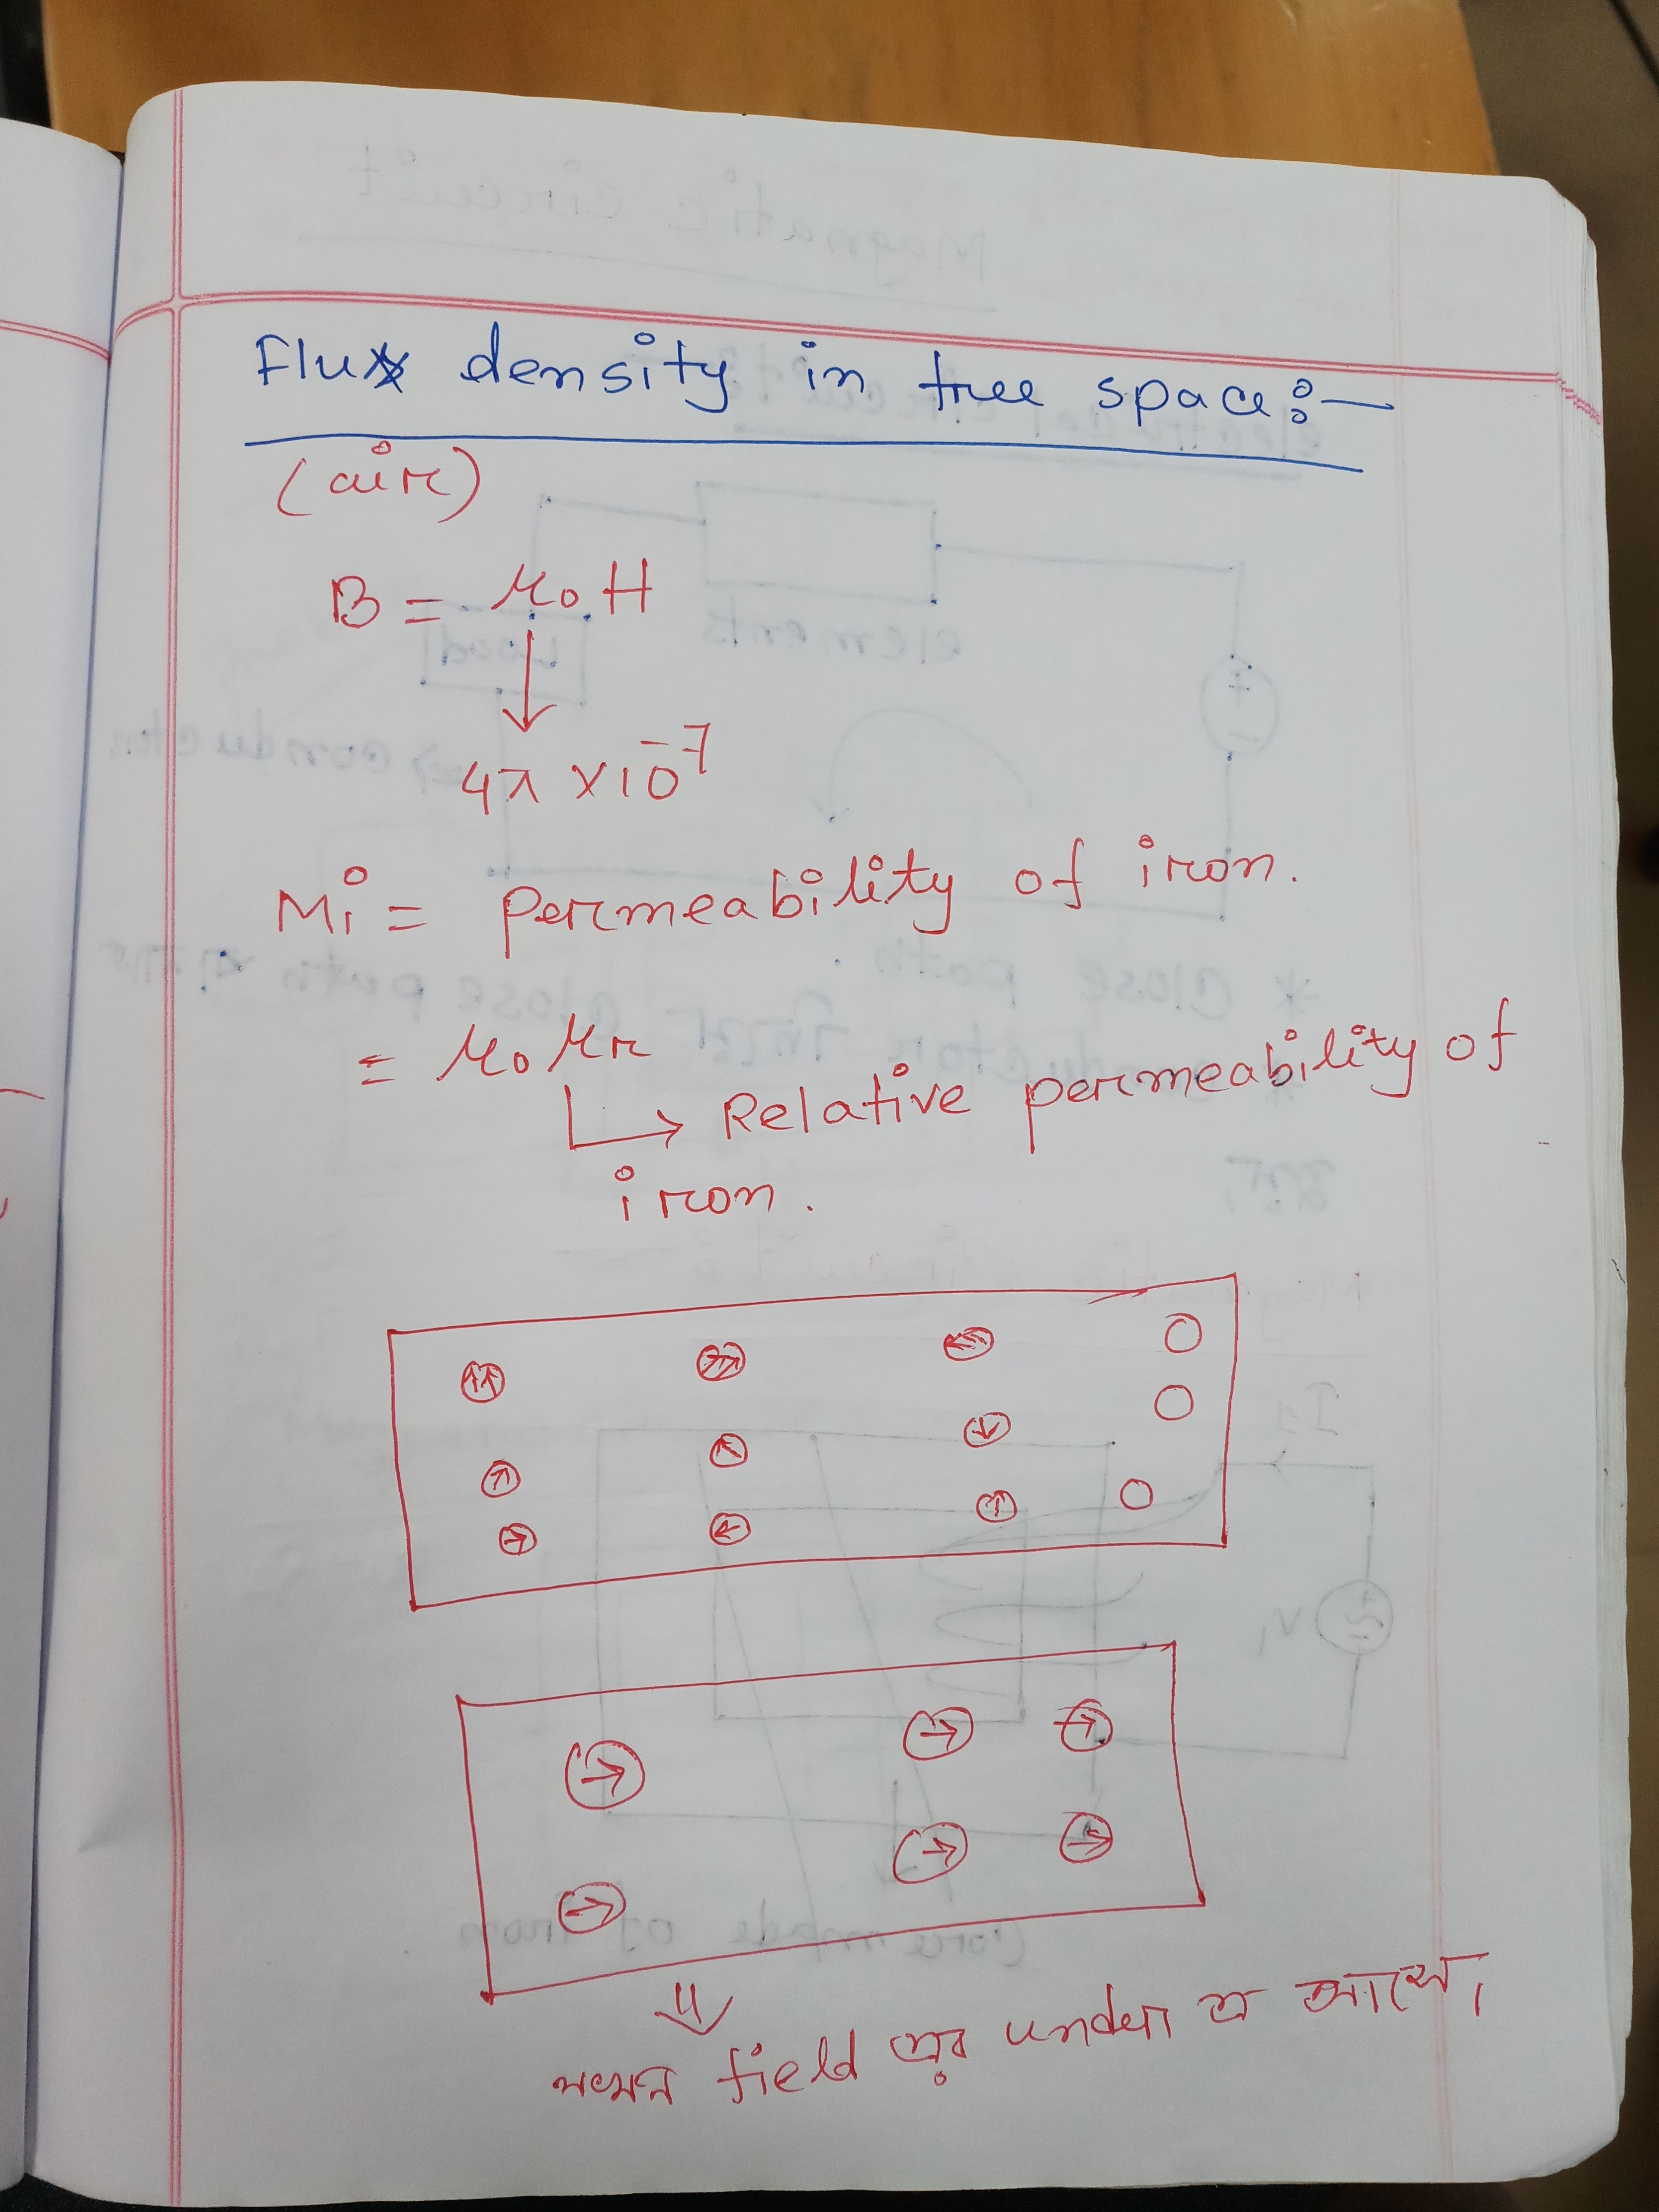 Flux density in free space:—
(air)
B = μ₀H
↓
4π × 10⁻⁷
Mi = permeability of iron.
= μ₀ μr
↳ Relative permeability of
iron.
যখন field এর under এ আসে।